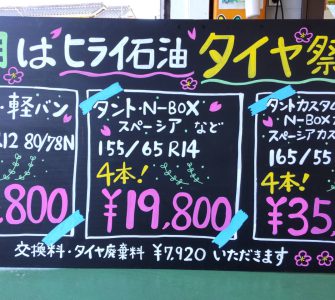 月はヒライ石油タイヤ祭
・軽バン
R12 80/78N
,800
タント・N-BOX
スペーシア など
155/65 R14
4本!
¥19,800
タントカスタ
N-BOX
スペーシアカス
165/55
4本!
¥35,
交換料・タイヤ廃棄料 ¥7,920 いただきます